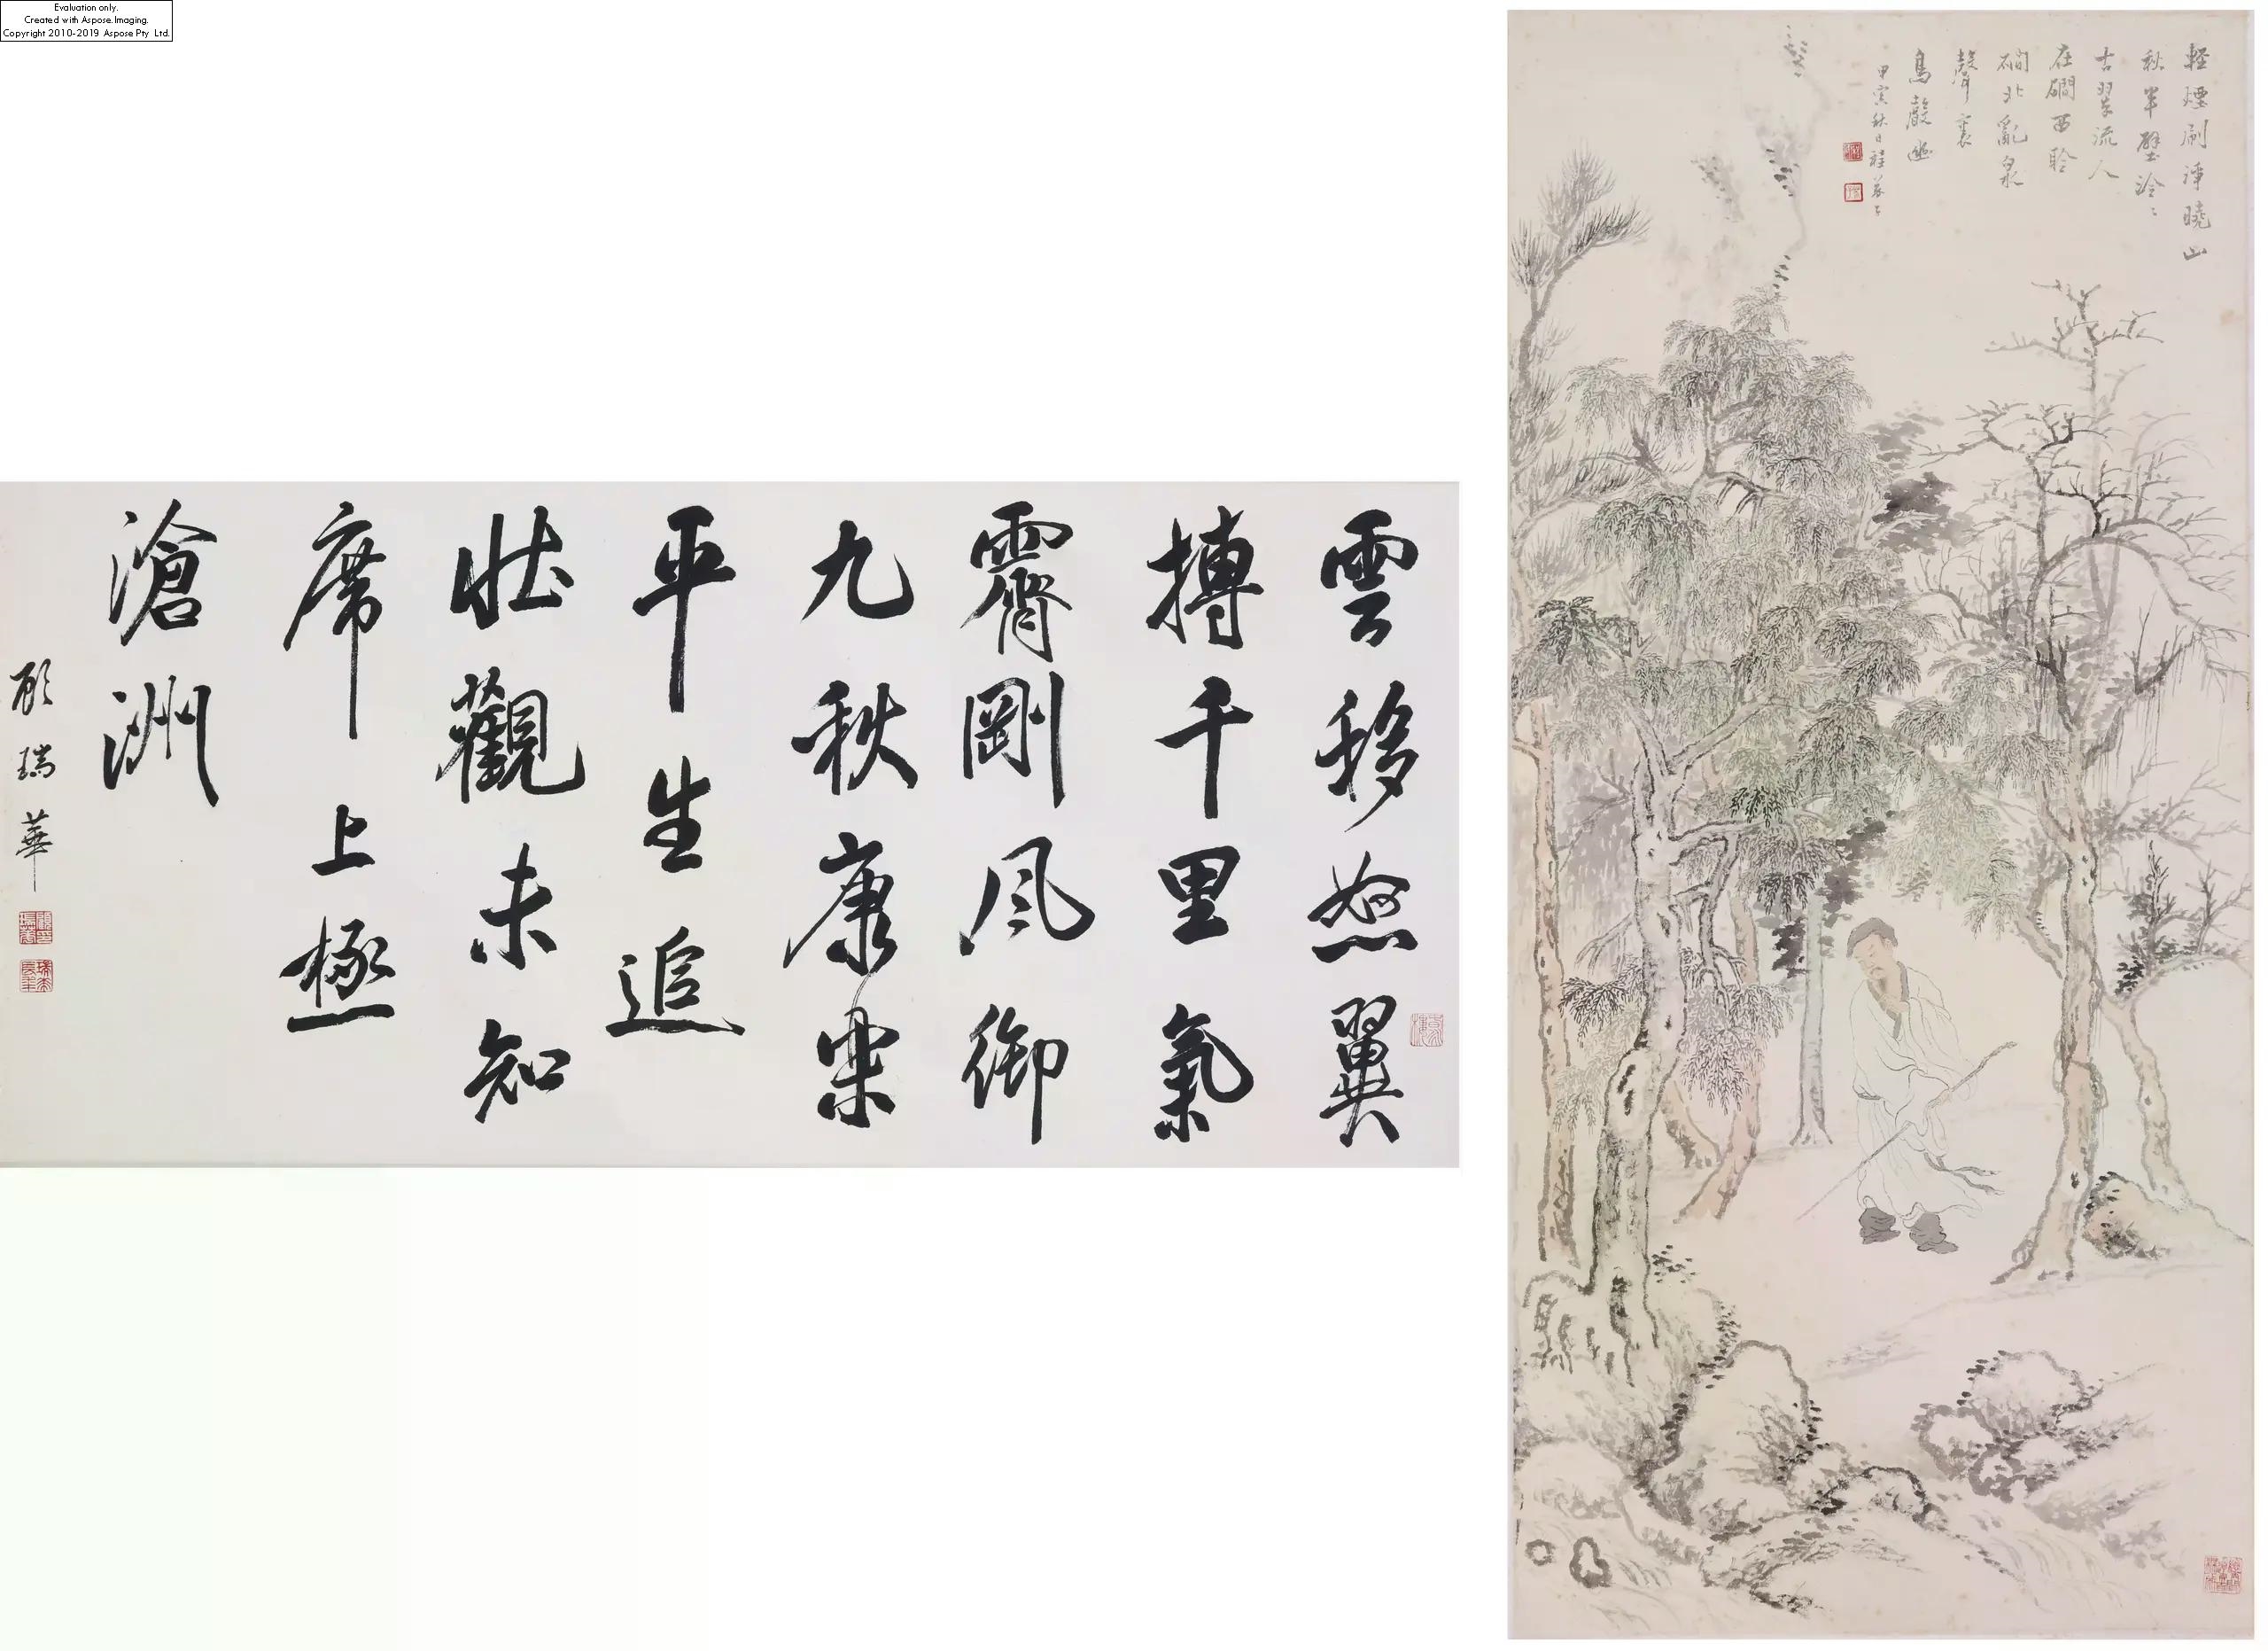 Evaluation only.
Created with Aspose.Imaging.
Copyright 2010-2019 Aspose Pty Ltd.
雲移怒翼
搏千里氣
霽剛風御
九秋康樂
平生追
壯觀未知
席上極
滄洲
顧瑞華
輕煙刷淨曉山
秋半壁泠泠
古翠流人
在磵西聆
磵北亂泉
聲裏
鳥聲幽
甲寅秋日